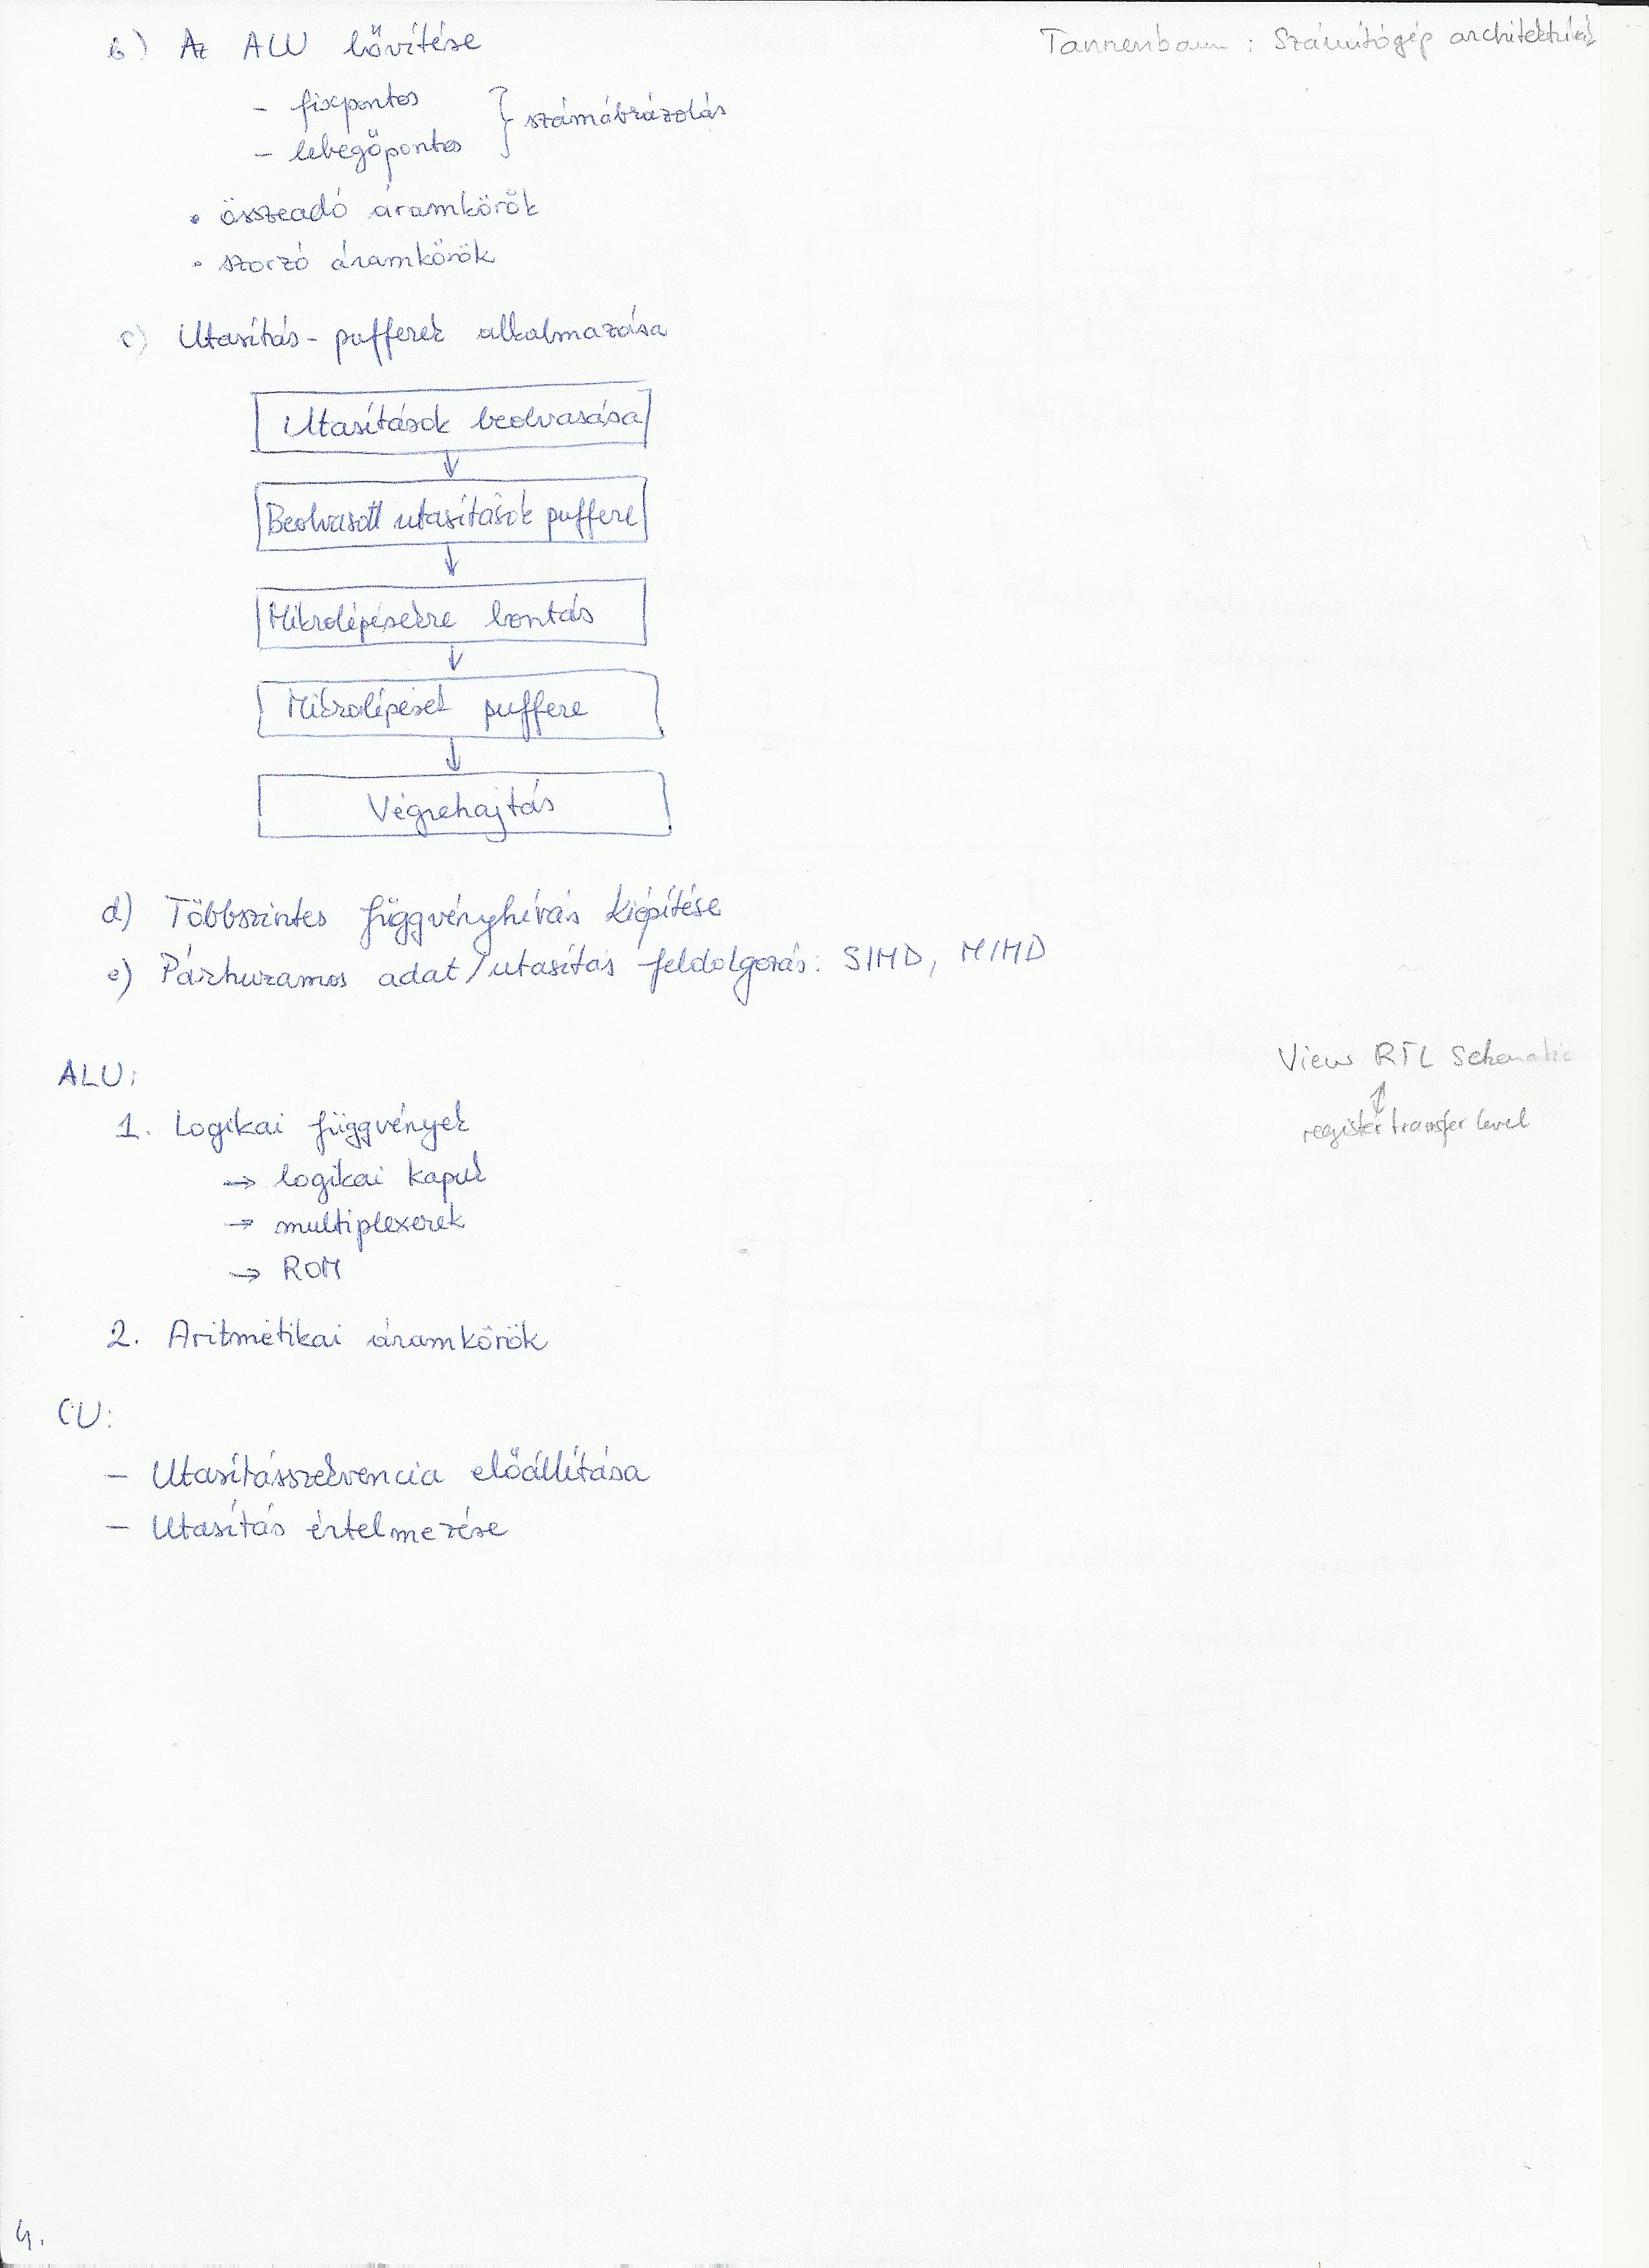 b) Az ALU bővítése
Tannenbaum : Számítógép architektúrák
- fixpontos
- lebegőpontos
} számábrázolás
• összeadó áramkörök
• szorzó áramkörök
c) Utasítás-pufferek alkalmazása
Utasítások beolvasása
↓
Beolvasott utasítások puffere
↓
Mikrolépésekre bontás
↓
Mikrolépések puffere
↓
Végrehajtás
d) Többszintes függvényhívás kiépítése
e) Párhuzamos adat/utasítás feldolgozás: SIMD, MIMD
View RTL Schematic
↕
register transfer level
ALU:
1. Logikai függvények
→ logikai kapuk
→ multiplexerek
→ ROM
2. Aritmetikai áramkörök
CU:
- Utasításszekvencia előállítása
- Utasítás értelmezése
4.